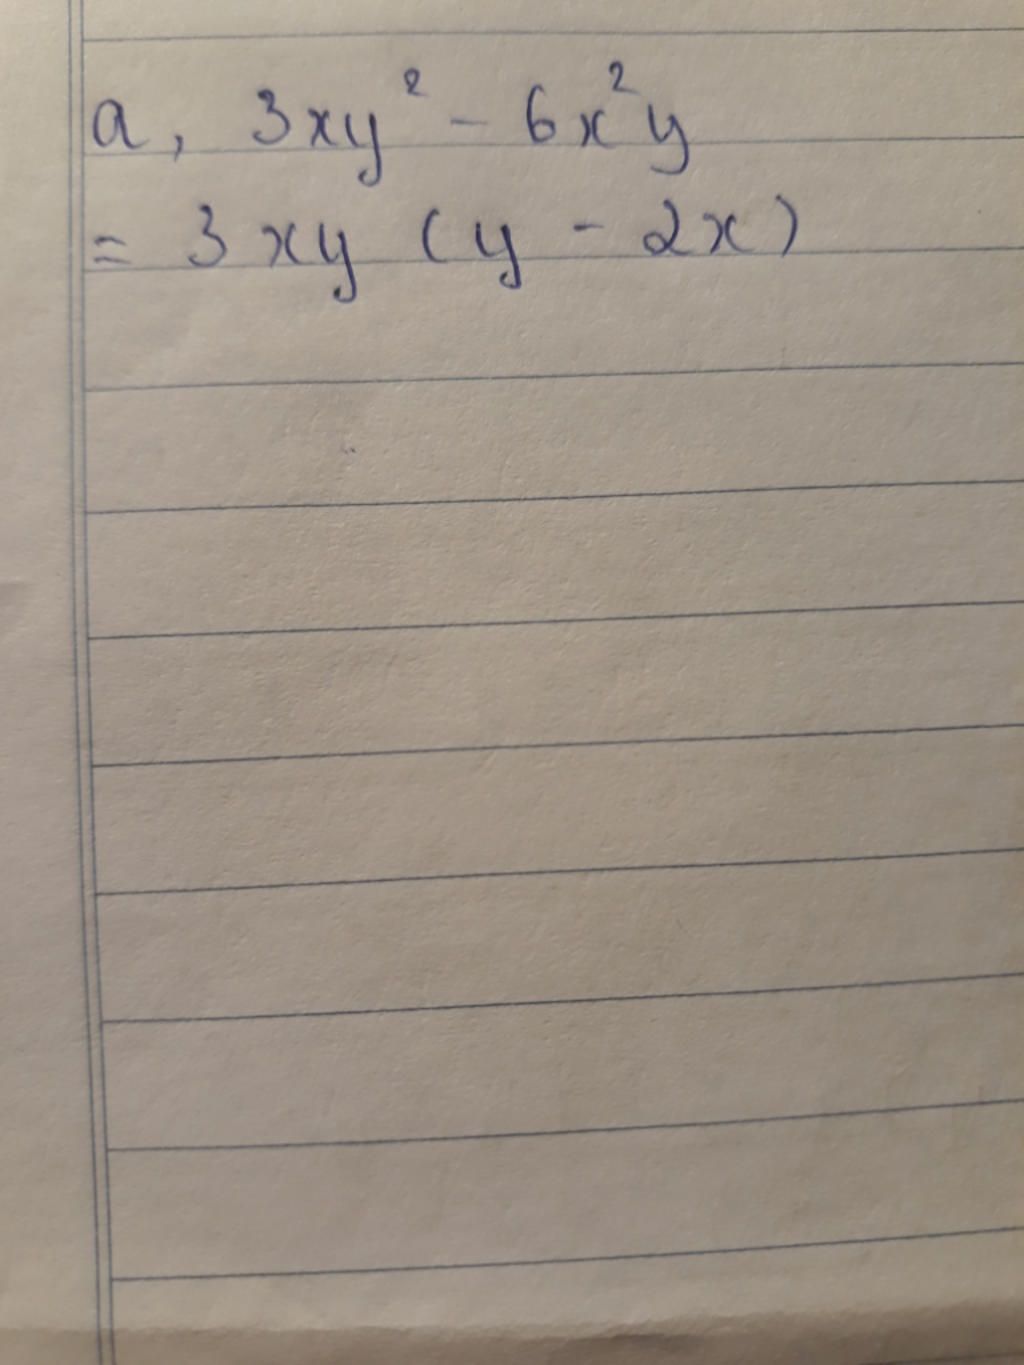 a, 3xy² - 6x²y
= 3xy (y - 2x)